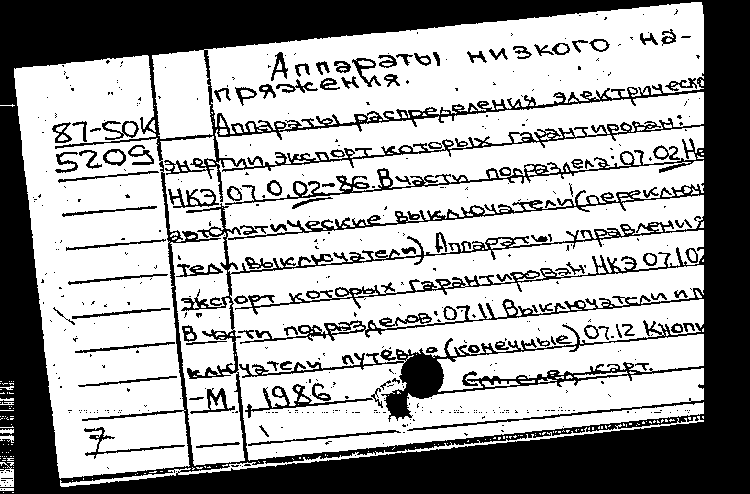 Аппараты низкого на-
пряжения.
87-50К
5209
Аппараты распределения электрическо
энергии, экспорт которых гарантирован:
НКЭ 07.0.02-86. В части подраздела: 07.02 Не
автоматические выключатели (переключа
тели, выключатели). Аппараты управления
экспорт которых гарантирован НКЭ 07.1.02
В части подразделов: 07.11 Выключатели и п
ключатели путевые (конечные). 07.12 Кнопк
М., 1986.
См. след. карт.
7